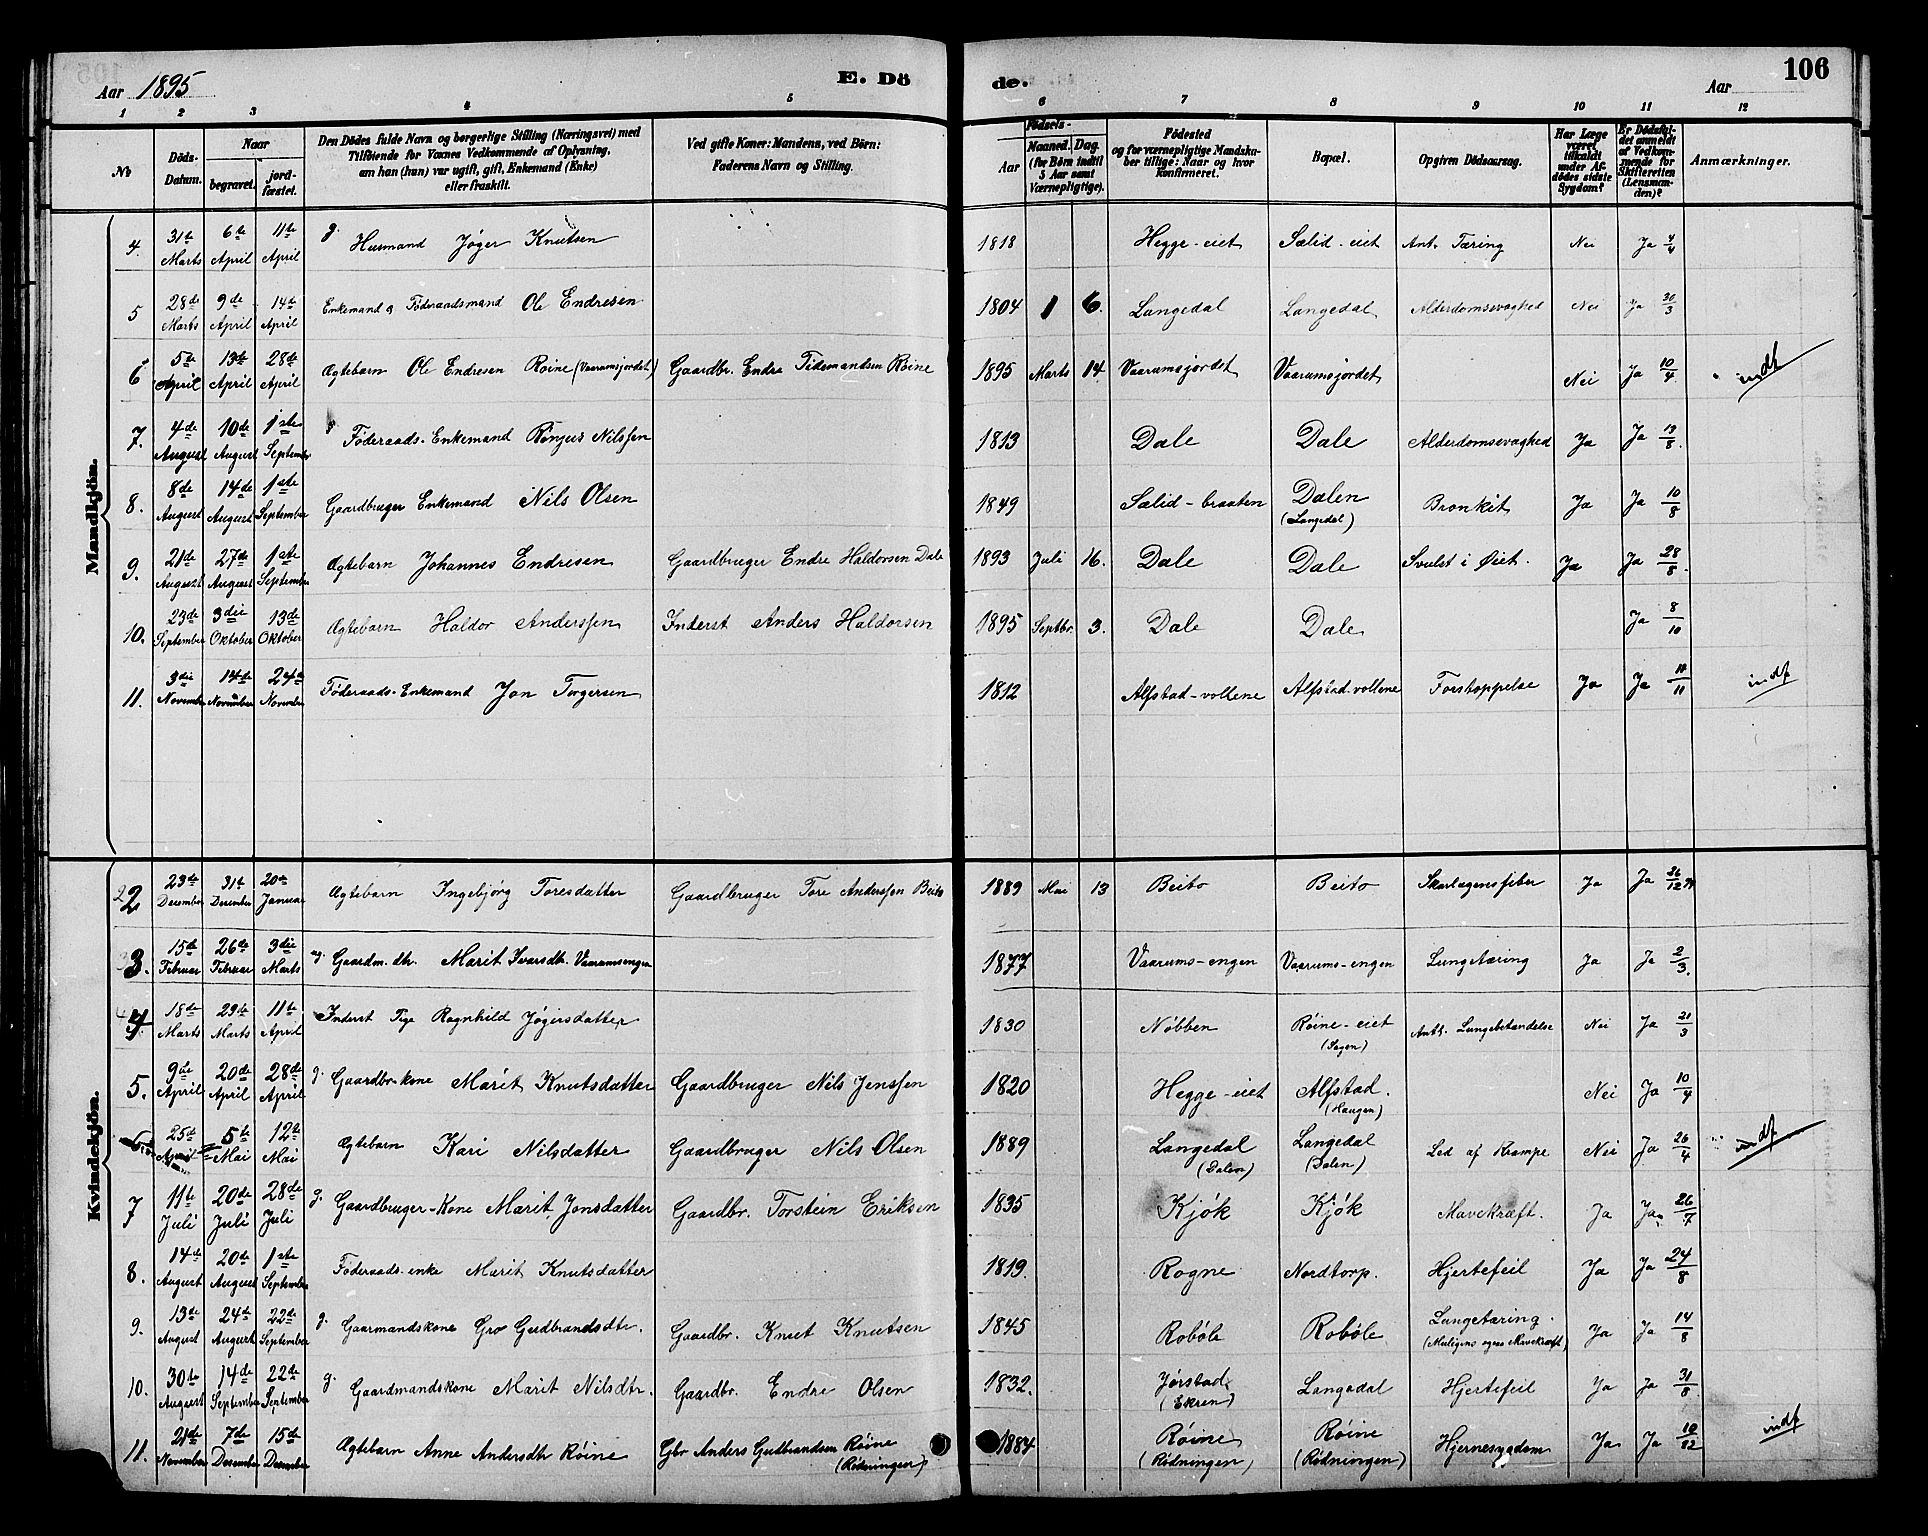 Aar 1895 E. Dö de. Aar 106
1 2 3 4 5 6 7 8 9 10 11 12
No
Döds-Datum.
Naar
begravet.
jordfæstet.
Den Dödes fulde Navn og borgerlige Stilling (Næringsvei) med
Tilföiende for Voxnes Vedkommende af Oplysning,
om han (hun) var ugift, gift, Enkemand (Enke)
eller fraskilt.
Ved gifte Koner: Mandens, ved Börn:
Faderens Navn og Stilling.
Födsels-
Aar
Maaned. Dag.
(for Börn indtil
5 Aar samt
Værnepligtige).
Födested
og for værnepligtige Mandska-
ber tillige: Naar og hvor
konfirmeret.
Bopæl.
Opgiven Dödsaarsag.
Har Læge
været
tilkaldt
under Af-
dödes sidste
Sygdom?
Er Dödsfal-
det anmeldt
af Vedkom-
mende for
Skifteretten
(Lensman-
den)?
Anmærkninger.
Mandkjön.
4. 31te Marts 6te April 11te April g. Husmand Jøger Knutsen 1818 Hegge-eiet Sælid-eiet Ant. Tæring Nei Ja 4/4
5 28de Marts 9de April 14de April Enkemand & Føderaadsmand Ole Endresen 1804 1 6. Langedal Langedal Alderdomssvaghed Nei Ja 30/3
6 5te April 13de April 28de April Ægtebarn Ole Endresen Røine (Vaarumsjordet) Gaardbr. Endre Tidemandsen Røine 1895 Marts 14. Vaarumsjordet Vaarumsjordet Nei Ja 10/4 indf
7. 4de August 10de August 1ste September Føderaads-Enkemand Nilssen 1813 Dale Dale Alderdomssvaghed Ja Ja 13/8.
8. 8de August 14de August 1ste September Gaardbruger Enkemand Nils Olsen 1849 Sælid-braaten Dalen (Langedal) Bronkit Ja Ja 10/8
9. 21de August 27de August 1ste September Ægtebarn Johannes Endresen Gaardbruger Endre Haldorsen Dale 1893 Juli 16. Dale Dale Svulst i Øiet. Ja Ja 28/8.
10. 23de September 3die Oktober 13de Oktober Ægtebarn Haldor Anderssen Inderst Anders Haldorsen 1895 Septbr. 3. Dale Dale Ja 8/10
11. 3die November 14de November 24de November Føderaads-Enkemand Jon Torgersen 1812 Alfstad-vollene Alfstad-vollene Forstoppelse Ja Ja 11/11 indf
Kvindekjön.
2 23de December 31te December 20de Januar Ægtebarn Ingebjørg Toresdatter Gaardbruger Tore Anderssen Beito 1889 Mai 13 Beito Beito Skarlagensfeber Ja Ja 26/12 94
3. 15de Februar 26de Februar 3die Marts ug. Gaardm. dtr. Marit Ivarsdtr. Vaarumsengen 1877 Vaarums-engen Vaarums-engen Lungetæring Ja Ja 2/3.
4. 18de Marts 29de Marts 11te April Inderst Pige Ragnhild Jøgersdatter 1830 Nøbben Røine-eiet (Sagen) Anth. Lungebetændelse Nei Ja 21/3
5. 9de April 20de April 28de April g. Gaardbr-kone Marit Knutsdatter Gaardbruger Nils Jenssen 1820 Hegge-eiet Alfstad. (Haugen) Nei Ja 10/4
6. 25de April 5te Mai 12te Mai Ægtebarn Kari Nilsdatter Gaardbruger Nils Olsen 1889 Langedal (Dalen) Langedal (Dalen) Led af Krampe Nei Ja 26/4 indf
7 11te Juli 20de Juli 28de Juli g. Gaardbruger-Kone Marit Jonsdatter Gaardbr. Torstein Eriksen 1835 Kjøk Kjøk Mavekræft. Ja Ja 26/7
8. 14de August 20de August 1ste September Føderaads-enke Marit Knutsdatter 1819. Rogne Nordtorp. Hjertefeil Ja Ja 24/8
9. 13de August 24de August 22de September g. Gaarmandskone Gro Gudbrandsdtr. Gaardbr. Knut Knutsen 1845 Robøle Robøle Lungetæring. (Muligens ogsaa Mavekræft) Ja Ja 14/8
10. 30te August 14de September 22de September g. Gaardmandskone Marit Nilsdtr. Gaardbr. Endre Olsen 1832. Jørstad (Ekren) Langedal Hjertefeil Ja Ja 31/8
11. 21de November 7de December 15de December Ægtebarn Anne Andersdtr Røine Gbr Anders Gudbrandsen Røine (Ridningen) 1884 Røine (Ridningen) Røine (Ridningen) Hjernesygdom Ja Ja 10/12 indf